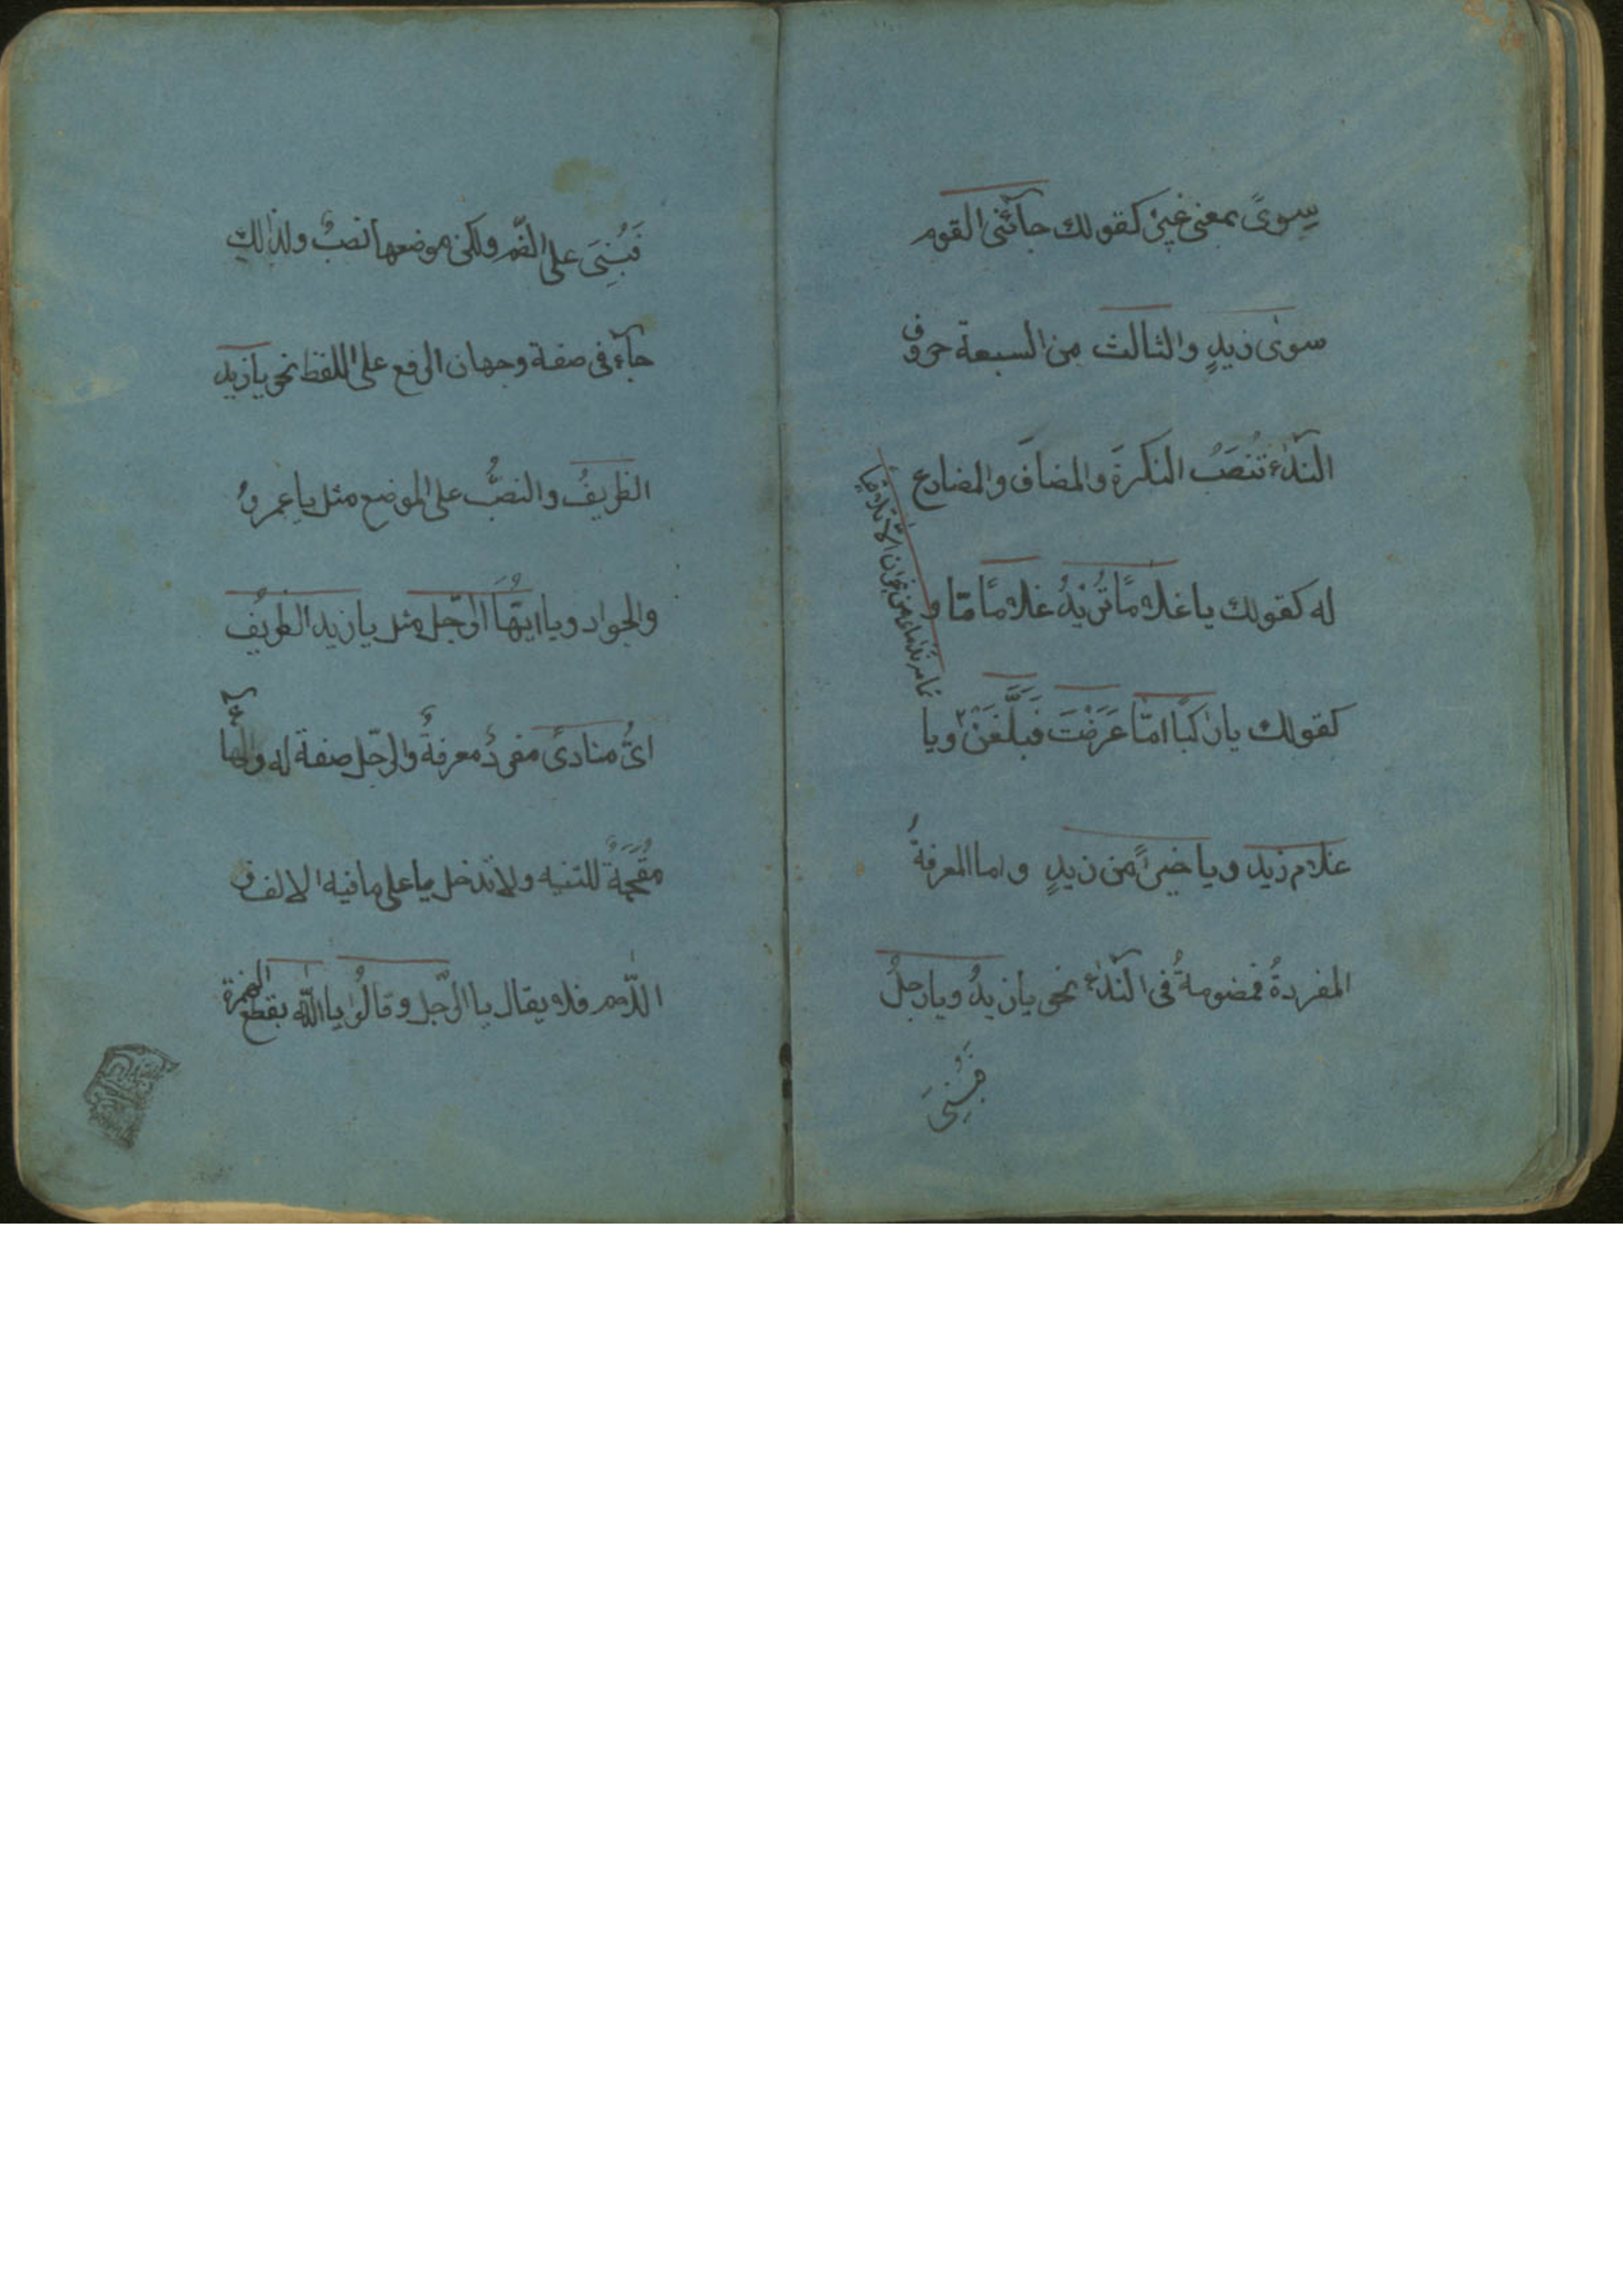 سِوىً بمعنى غير كقولك جآئنى القوم
سوىٰ زيدٍ والثالث من السبعة حروف
النّدآء تُنصَبُ النكرةَ والمضافَ والمضارع
له كقولك يا غلامًا تُرِيْدُ غلامًا مّا و
كقولك يا راكبًا امّا عَرَضْتَ فَبَلِّغَنْ ويا
غلام زيد ويا خيرًا من زيدٍ واما المعرفةُ
المفردةُ فمضومةُ فى النّدآء نحو يا زيدُ ويا رجلُ
فَبُنِىَ
ندامای من نجران الّا تلاقيا
فَبُنِىَ على الضّم ولكن موضعها نصبٌ ولذالك
جآء فى صفة وجهان الرفع على اللفظ نحو يا زيد
الظريفُ والنصبُ على الموضع مثل يا عمروُ
والجواد ويا ايّهَُا الرّجل مثل يا زيد الظريفُ
اىُّ منادىً مفردٌ معرفةٌ والرّجل صفة له والهآ
مُقْحَمَةٌ للتنبيه ولا تدخل يا على ما فيه الالف و
اللّام فلا يقال يا الرّجل وقالُوا يا اللّه بقطع الهمزة